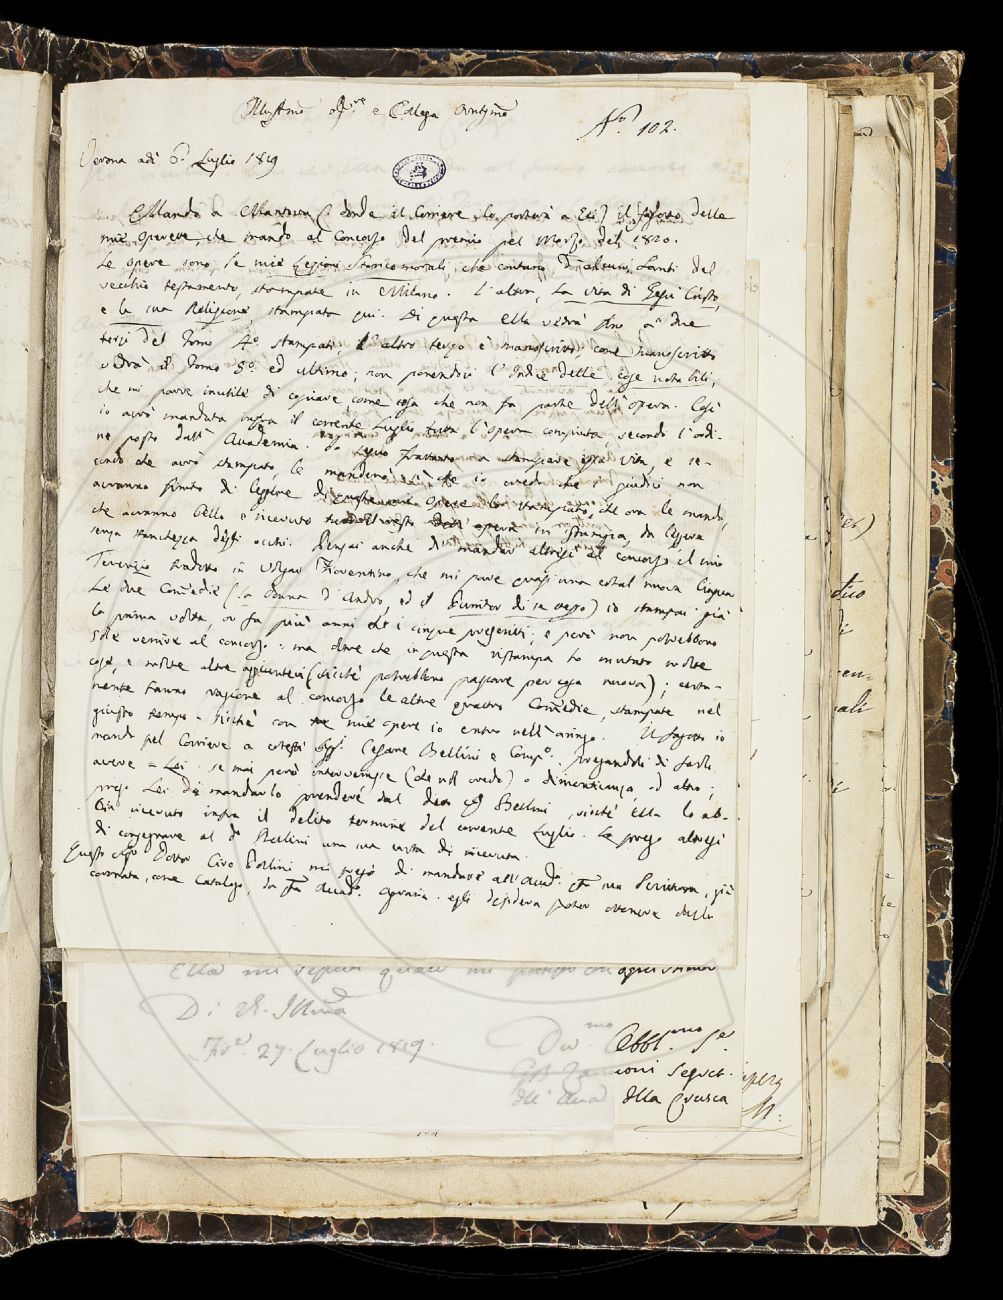 Illustmo Sigre e Collega Amatissmo
No. 102.
Verona adì 6. Luglio 1819
Mando a Mantova (donde il Corriere lo porterà a Lei) il fagotto delle
mie operette, che mando al Concorso del premio pel Marzo del 1820.
Le opere sono le mie Lezioni Storico-morali, che contano d'alcuni Santi del
vecchio testamento, stampate in Milano. L'altra, La vita di Gesù Cristo,
e la sua Religione stampata qui. Di questa Ella vedrà fino a' due
terzi del Tomo 4o. stampati, l'altro terzo è manoscritto; come manoscritto
vedrà il Tomo 5o. ed ultimo; non ponendovi l'Indice delle cose notabili,
che mi parve inutile di copiare come cosa che non fa parte dell'opera. Così
io avrò mandata infra il corrente Luglio tutta l'opera compiuta, secondo l'ordi-
ne posto dall' Academia. Io seguo frattanto a stampare essa vita, e se-
condo che avrò stampato, le manderò: sì che io credo che i giudici non
avranno finito di leggere di queste mie opere lo stampato, che ora le mando,
che avranno bello e ricevuto tutto il resto dell'opera in istampa, da leggere
senza stanchezza degli occhi. Pensai anche di mandar altresì al concorso il mio
Terenzio tradotto in volgar Fiorentino, che mi pare quasi una cotal nuova lingua
Le due Comedie (la donna d'Andro, ed il Punitor di se stesso) io stampai già
la prima volta, or fa più anni che i cinque prescritti; e però non potrebbono
sole venire al concorso: ma oltre che in questa ristampa ho mutato molte
cose, e molte altre aggiuntevi (sicchè potrebbono passare per cosa nuova); certa-
mente hanno ragione al concorso le altre quattro Comedie, stampate nel
giusto tempo. Sicchè con tre mie opere io entro nell'aringo. Il fagotto io
mando pel Corriere a cotesti Sigg. Cesare Bellini e Compo. pregandoli di farlo
avere a Lei. Se mai però intervenisse (che nol credo) o dimenticanza, od altro;
prego Lei di mandarlo prendere dal detto Sig Bellini, sicchè Ella lo ab-
bia ricevuto infra il debito termine del corrente Luglio. La prego altresì
di consegnare al do Bellini una sua carta di ricevuta.
Questo Sigr Dottor Ciro Pollini mi pregò di mandare all'Acad. una sua Scrittura, già
coronata, come Catalogo, da Acad. agraria. egli desidera poter ottenere dagli
Ella mi reputi quale mi protesto con
Di V. S. Illma
Fire. 27. Luglio 1819.
Devmo Obblmo Se.
Gio Bat Zannoni Segret.
dell' Acad della Crusca